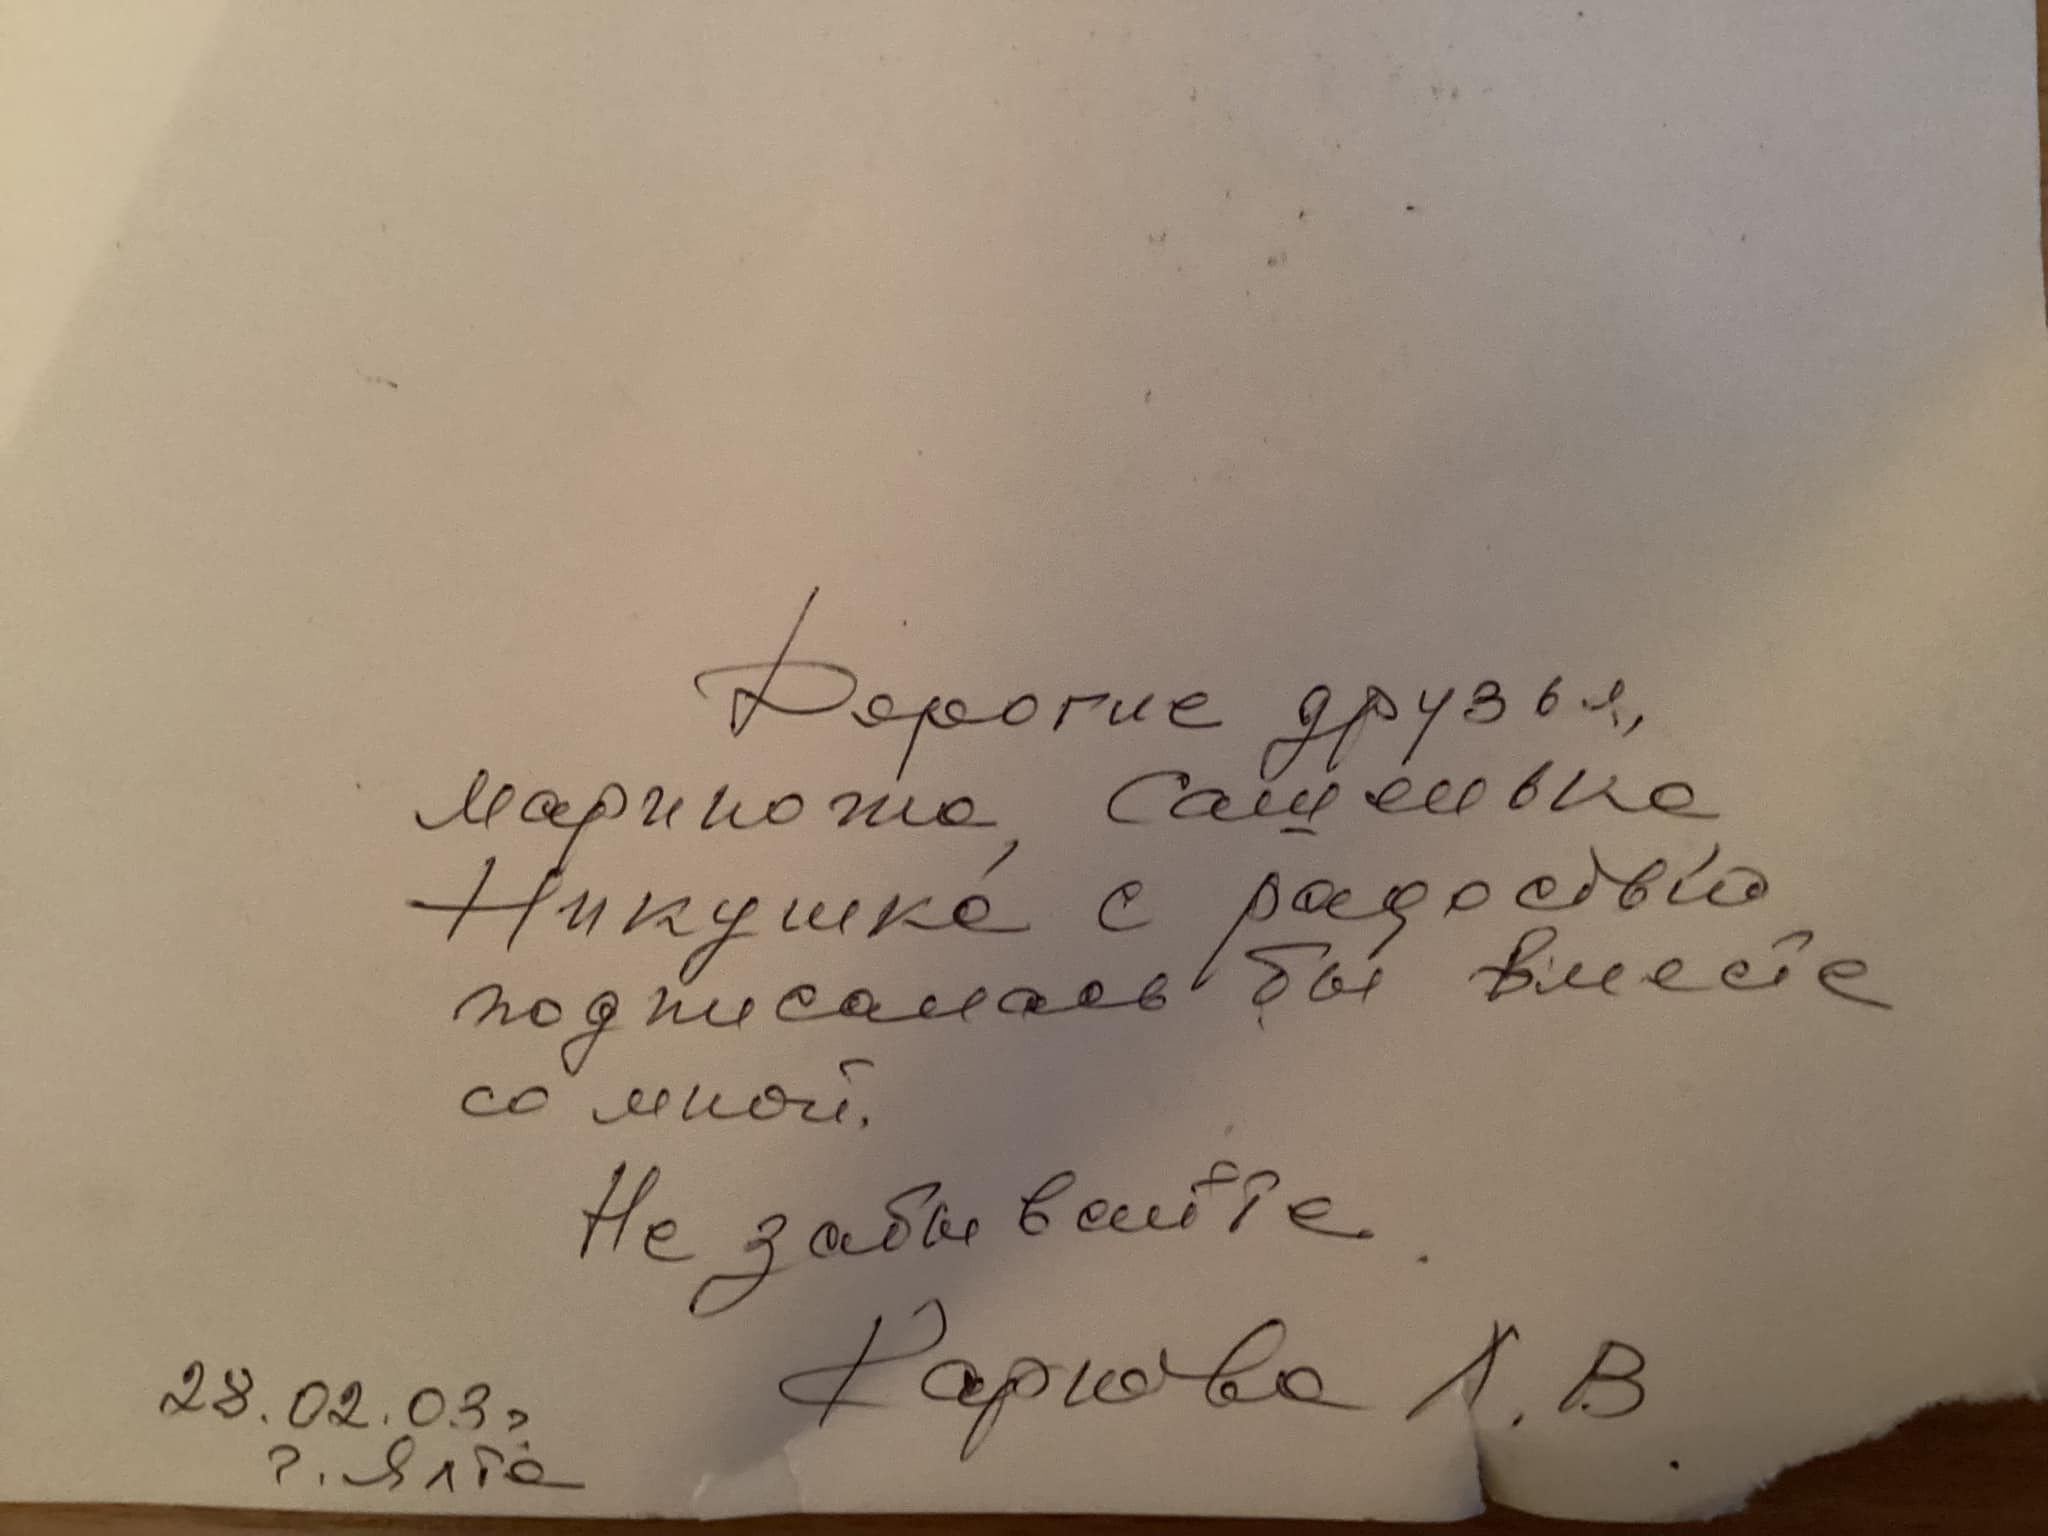 Дорогие друзья,
Мариножа, Сашенька
Никушка с радостью
подписалась бы вместе
со мной.
Не забывайте.
Карпова Л. В.
28.02.03г.
г. Ялта